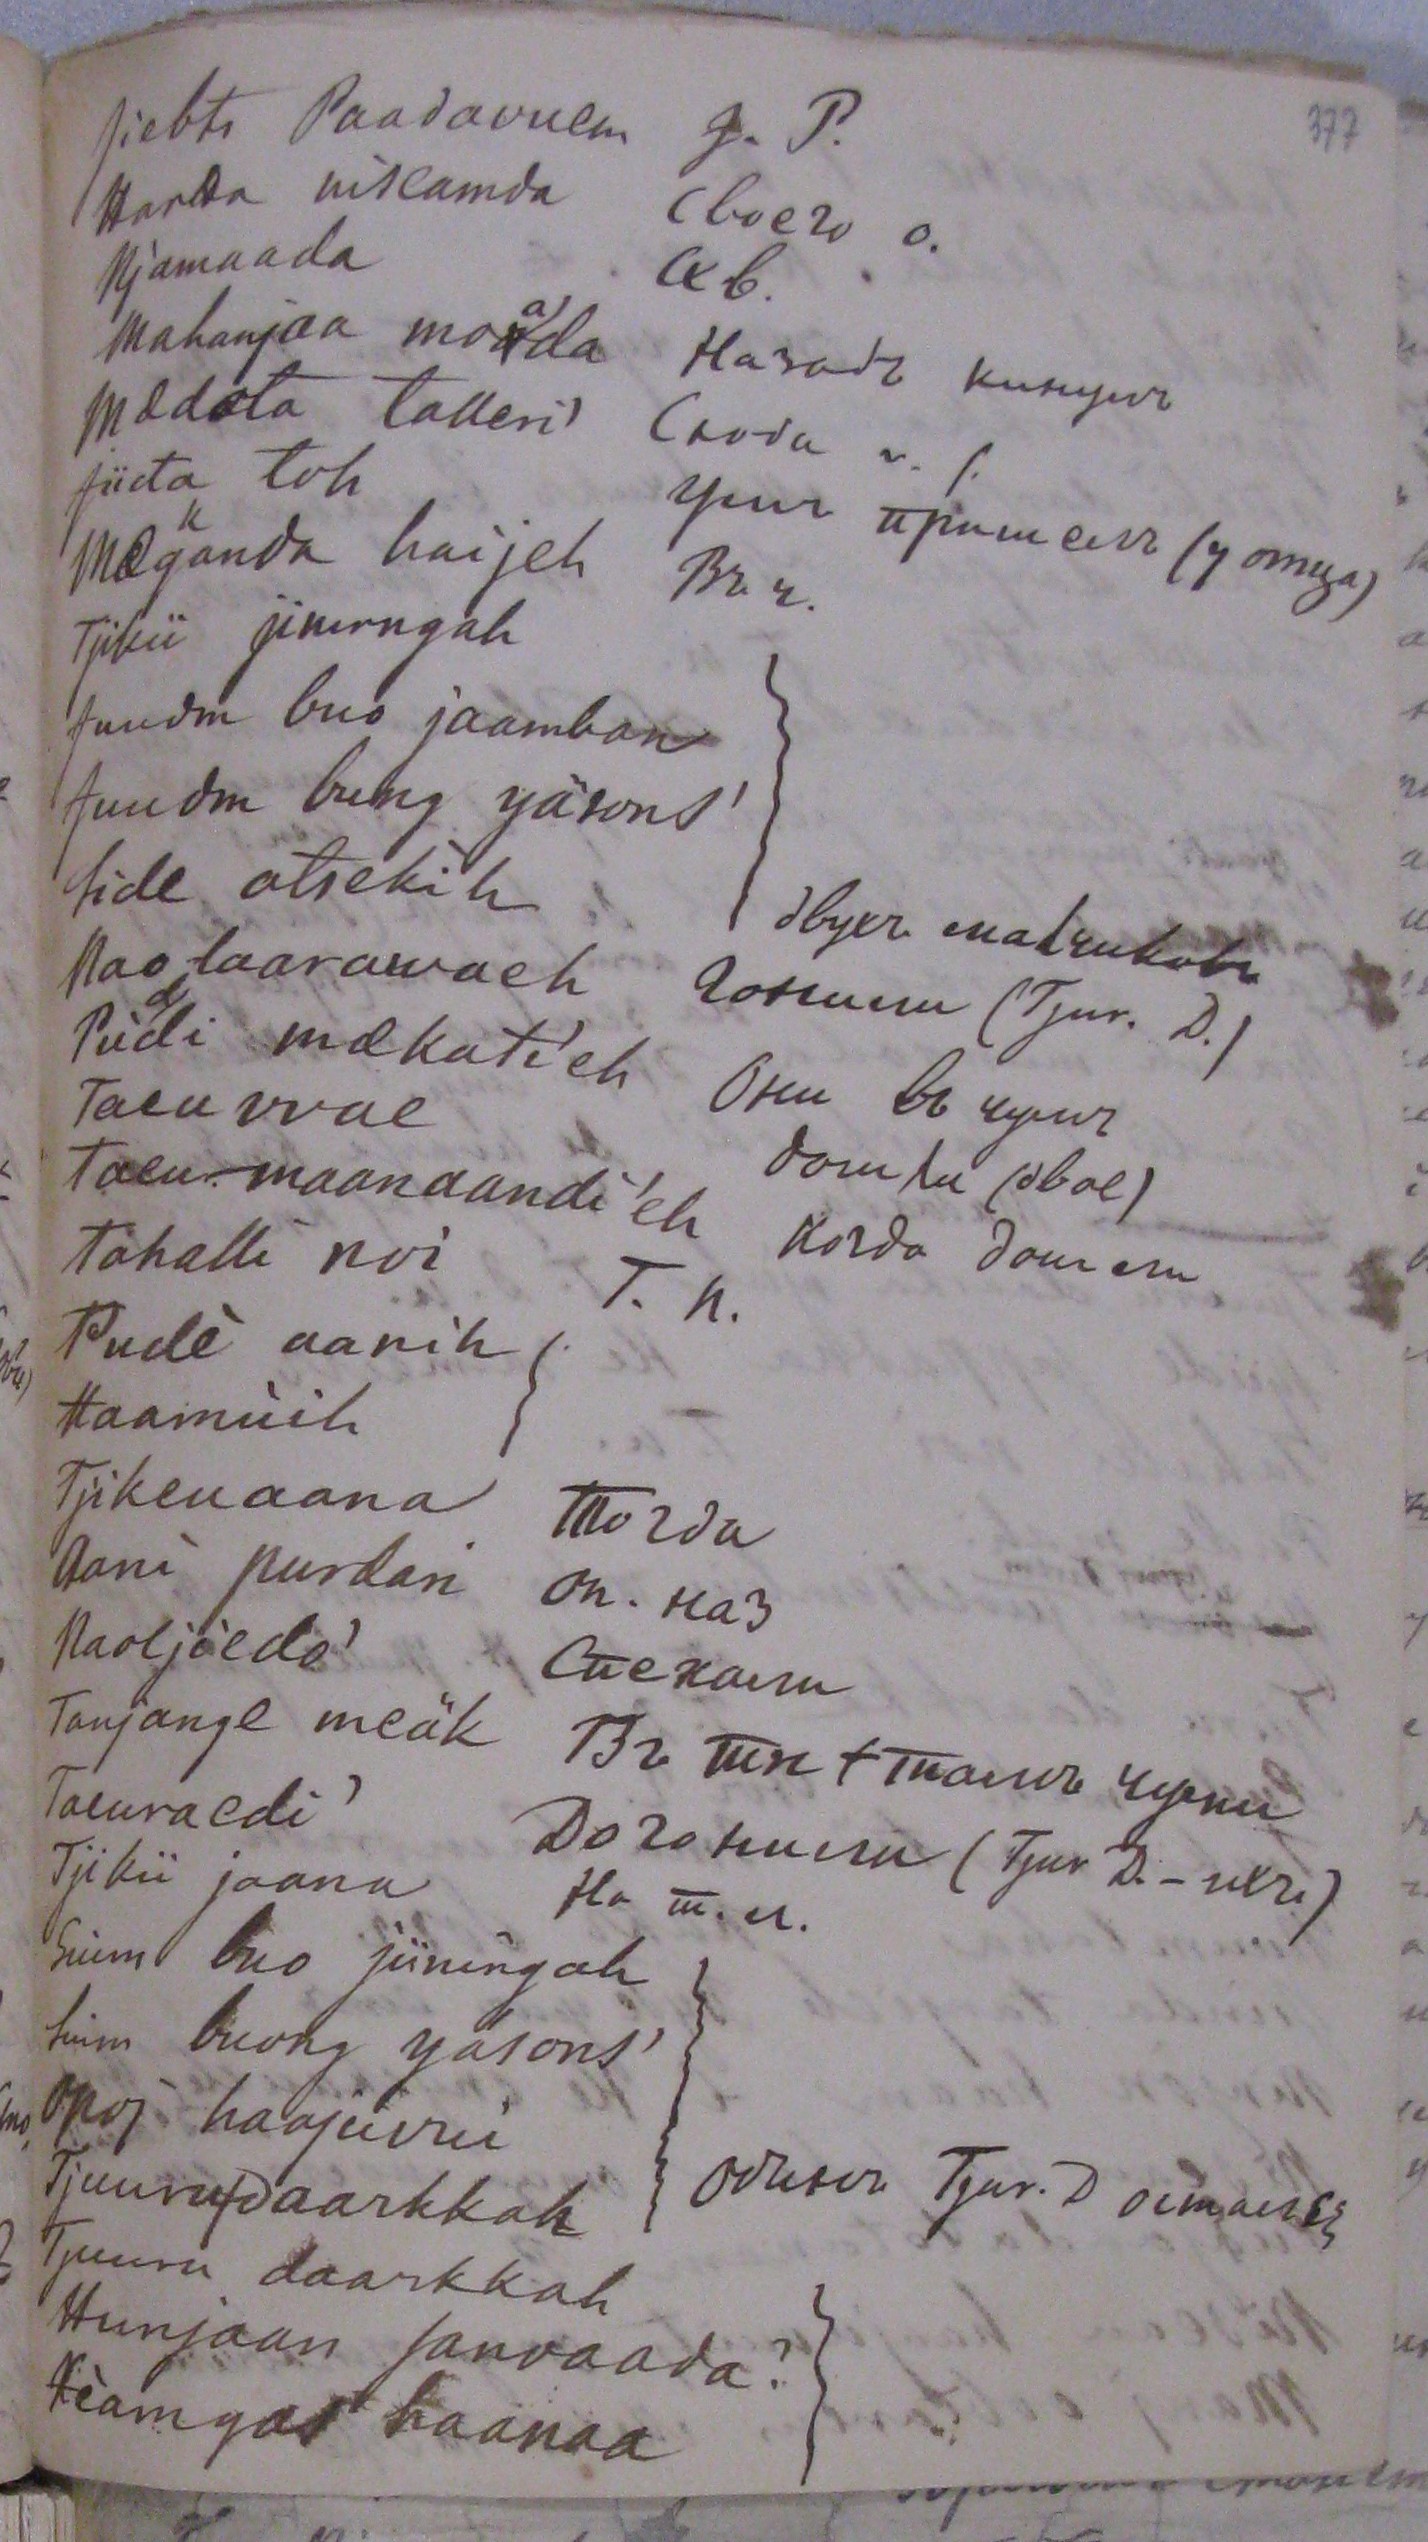 377
siebts Paadavuem J. P.
Harda niseamda Своего о.
Njamaada Хв.
Mahanjaa moada Назадъ кинулъ
Mædæta talleri' Сюда
siita toh Умъ пришелъ (у отца)
Mæganda haijeh Въ ч.
Tjikii jinerngah
suudm buo jaamban
suudm bung yäsons'
side otsekih двухъ мальчиковъ
Nao laarawaeh Гонили (Tjur. D.)
Püdi mækati'eh Они въ чумъ
Taeuvvae дошли (двое)
Taeu-maanaandi'eh Когда дошли
Tahalli noi Т. п.
Pudè aanih
Haamüih
Tjikeuaana Тогда
Aani purdari Оп. наз
Naoljiedo' Спехали
Tanjange meäk Въ тѣх + тамъ чуми
Taeuraedi' Догонили (Tjur D. – ихъ)
Tjikii jaana На т. м.
suim buo jiiningah
suim buong yäsons'
Opoj haajuvrii
Tjuuru daarkkah Одинъ Tjur. D остался
Tjuuru daarkkah
Hunjaan sanvaada?
haanaa